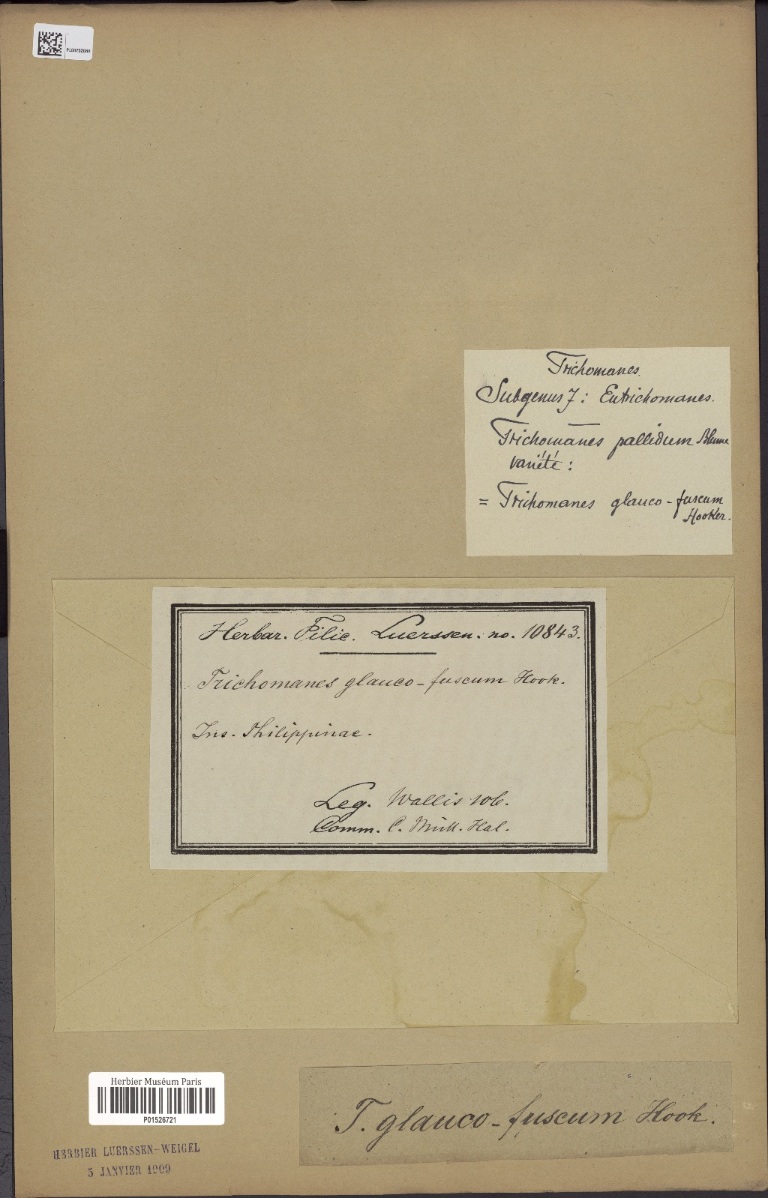 Trichomanes.
Subgenus 7: Eutrichomanes.
Trichomanes pallidum Blume
variété:
= Trichomanes glauco-fuscum
Hooker.
Herbar. Filic. Luerssen. no. 10843.
Trichomanes glauco-fuscum Hook.
Ins. Philippinae.
Leg. Wallis 106.
Comm. C. Müll. Hal.
Herbier Muséum Paris
P01526721
T. glauco-fuscum Hook.
HERBIER LUERSSEN-WEIGEL
3 JANVIER 1909